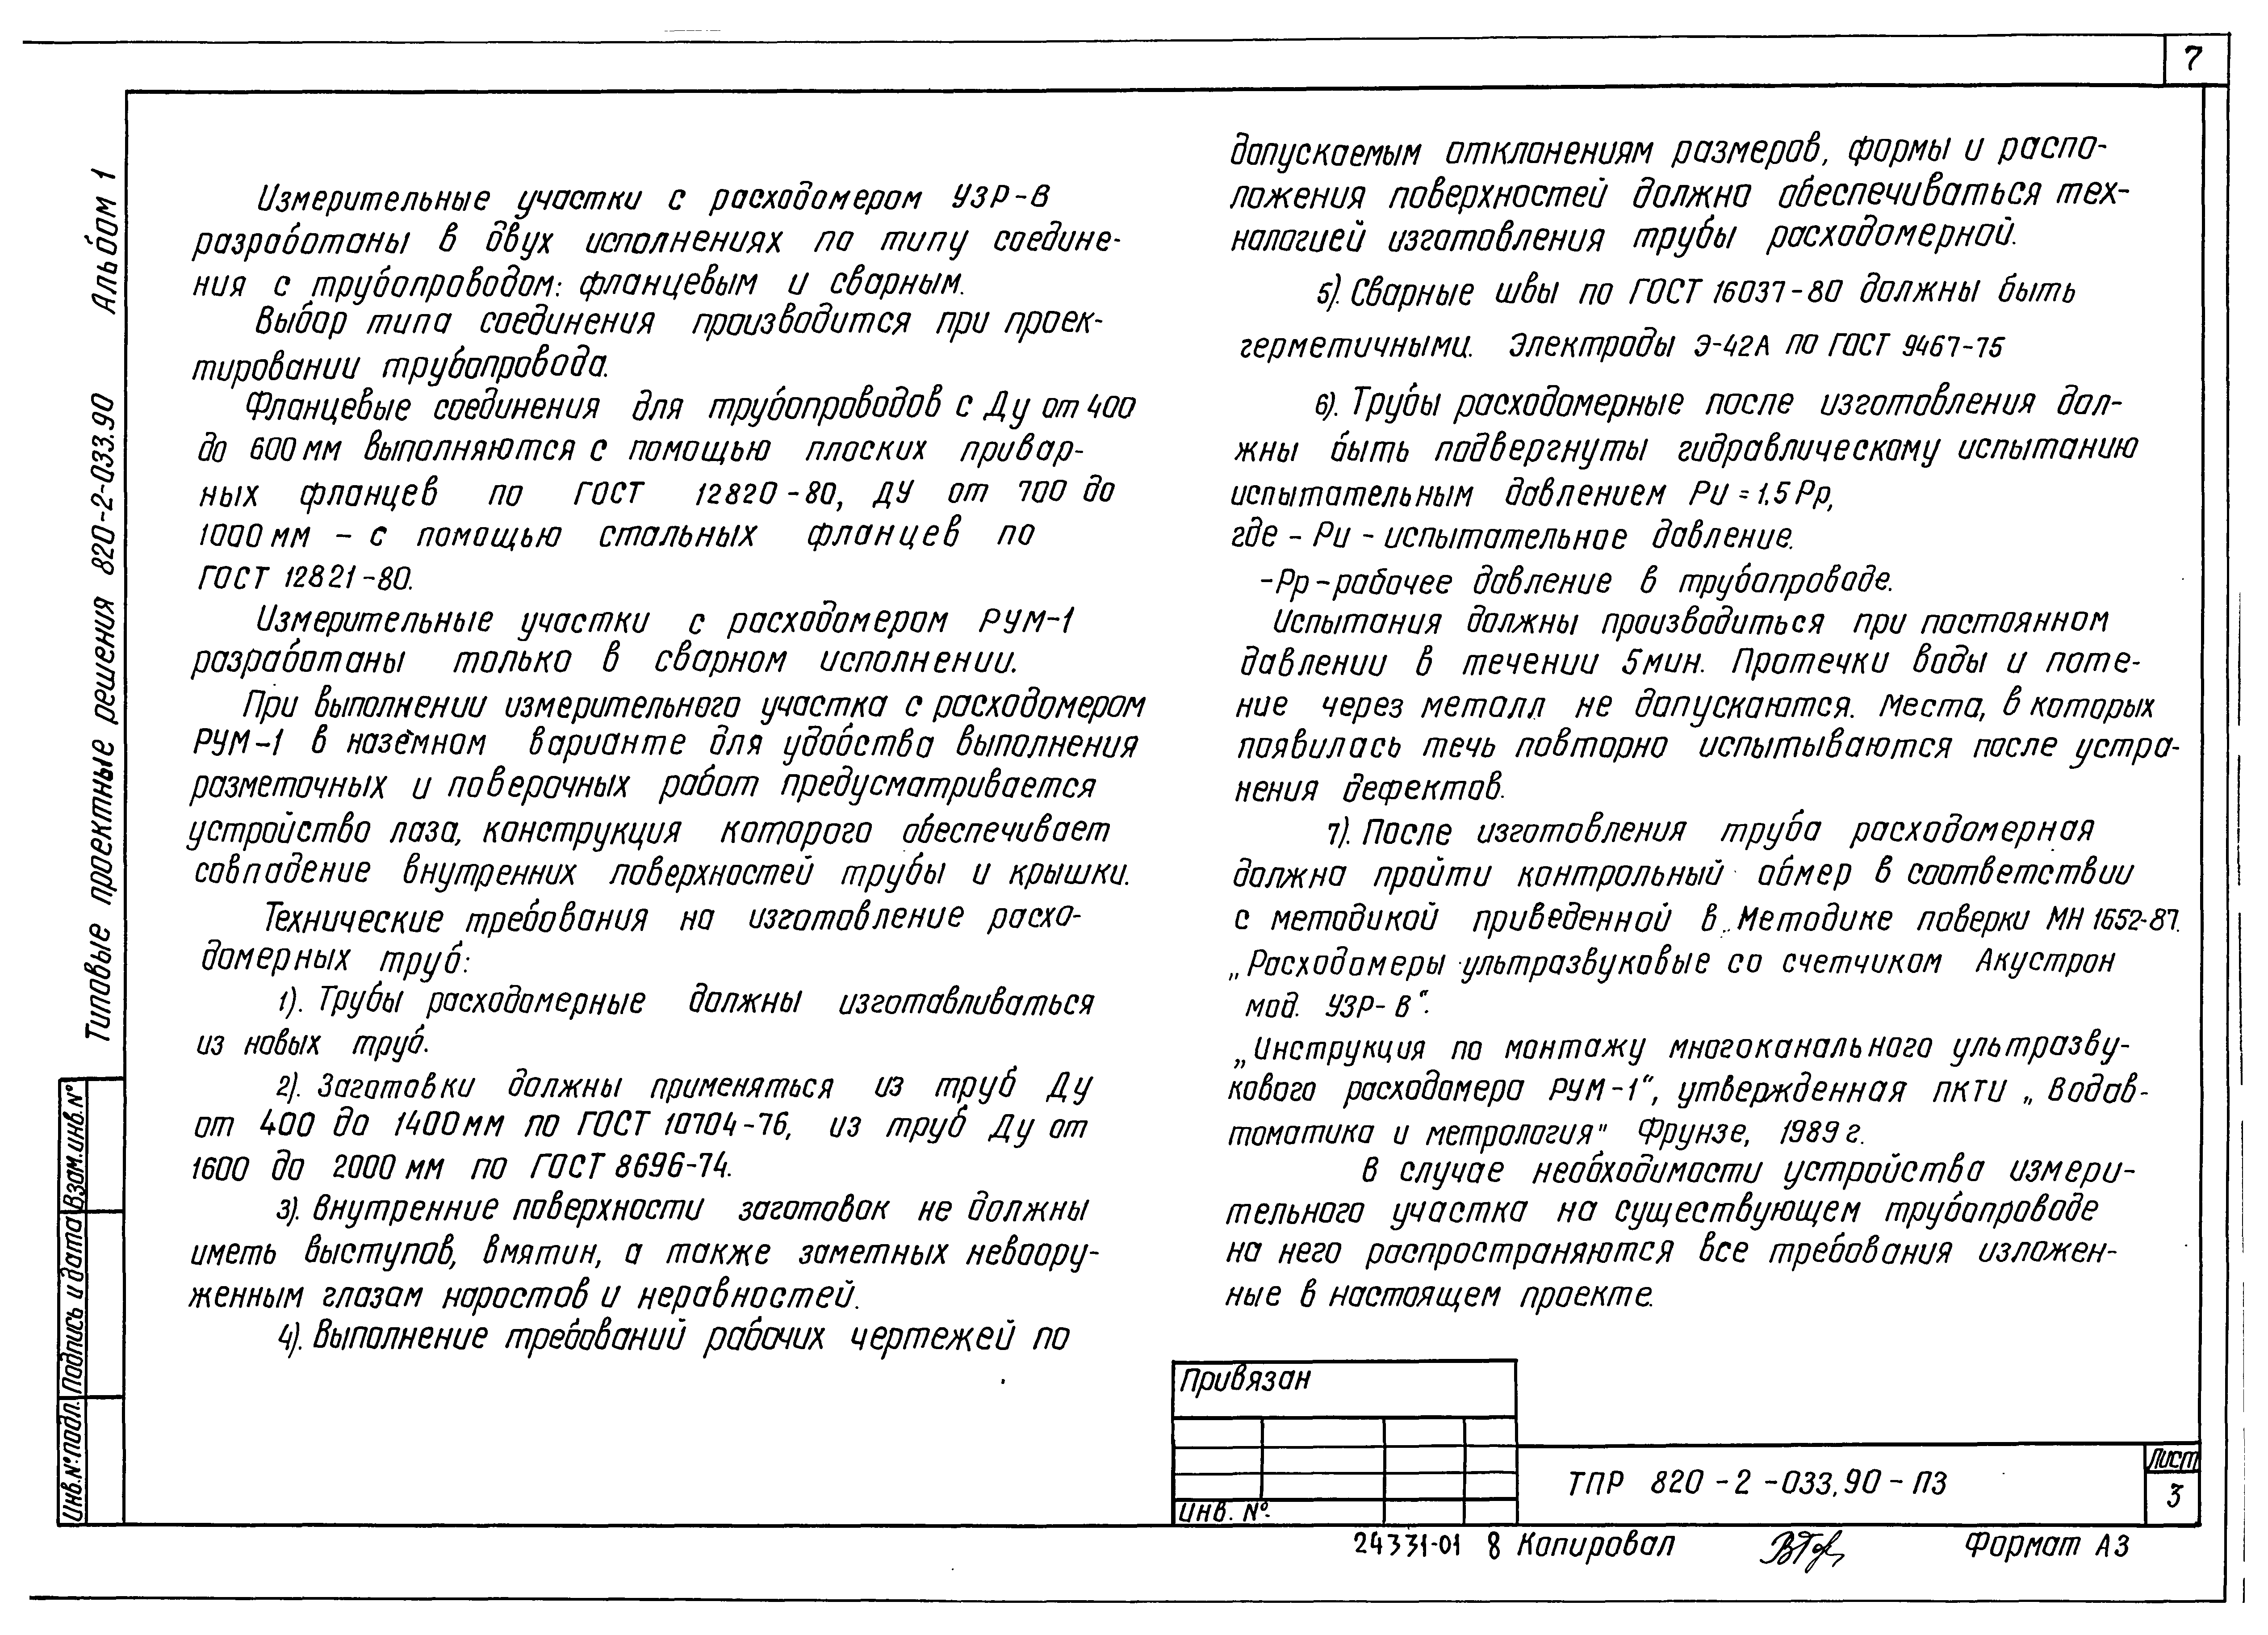 7
Альбом 1
Типовые проектные решения 820-2-033.90
Измерительные участки с расходомером УЗР-В
разработаны в двух исполнениях по типу соедине-
ния с трубопроводом: фланцевым и сварным.
Выбор типа соединения производится при проек-
тировании трубопровода.
Фланцевые соединения для трубопроводов с Ду от 400
до 600 мм выполняются с помощью плоских привар-
ных фланцев по ГОСТ 12820-80, ДУ от 700 до
1000 мм - с помощью стальных фланцев по
ГОСТ 12821-80.
Измерительные участки с расходомером РУМ-1
разработаны только в сварном исполнении.
При выполнении измерительного участка с расходомером
РУМ-1 в наземном варианте для удобства выполнения
разметочных и поверочных работ предусматривается
устройство лаза, конструкция которого обеспечивает
совпадение внутренних поверхностей трубы и крышки.
Технические требования на изготовление расхо-
домерных труб:
1). Трубы расходомерные должны изготавливаться
из новых труб.
2). Заготовки должны применяться из труб Ду
от 400 до 1400 мм по ГОСТ 10704-76, из труб Ду от
1600 до 2000 мм по ГОСТ 8696-74.
3). Внутренние поверхности заготовок не должны
иметь выступов, вмятин, а также заметных невоору-
женным глазам наростов и неравностей.
4). Выполнение требований рабочих чертежей по
допускаемым отклонениям размеров, формы и распо-
ложения поверхностей должно обеспечиваться тех-
нологией изготовления трубы расходомерной.
5). Сварные швы по ГОСТ 16037-80 должны быть
герметичными. Электроды Э-42А по ГОСТ 9467-75
6). Трубы расходомерные после изготовления дол-
жны быть подвергнуты гидравлическому испытанию
испытательным давлением Ри = 1,5 Рр,
где - Ри - испытательное давление.
-Рр - рабочее давление в трубопроводе.
Испытания должны производиться при постоянном
давлении в течении 5 мин. Протечки воды и поте-
ние через металл не допускаются. Места, в которых
появилась течь повторно испытываются после устра-
нения дефектов.
7). После изготовления труба расходомерная
должна пройти контрольный обмер в соответствии
с методикой приведенной в „Методике поверки МН 1652-87.
„Расходомеры ультразвуковые со счетчиком Акустрон
мод. УЗР-В“.
„Инструкция по монтажу многоканального ультразву-
кового расходомера РУМ-1“, утвержденная ПКТИ „Водав-
томатика и метрология" Фрунзе, 1989 г.
В случае необходимости устройства измери-
тельного участка на существующем трубопроводе
на него распространяются все требования изложен-
ные в настоящем проекте.
Инв.№ подл. Подпись и дата Взам.инв.№
Привязан
Инв. №
ТПР 820-2-033.90-ПЗ
Лист
3
24331-01 8 Копировал Формат А3